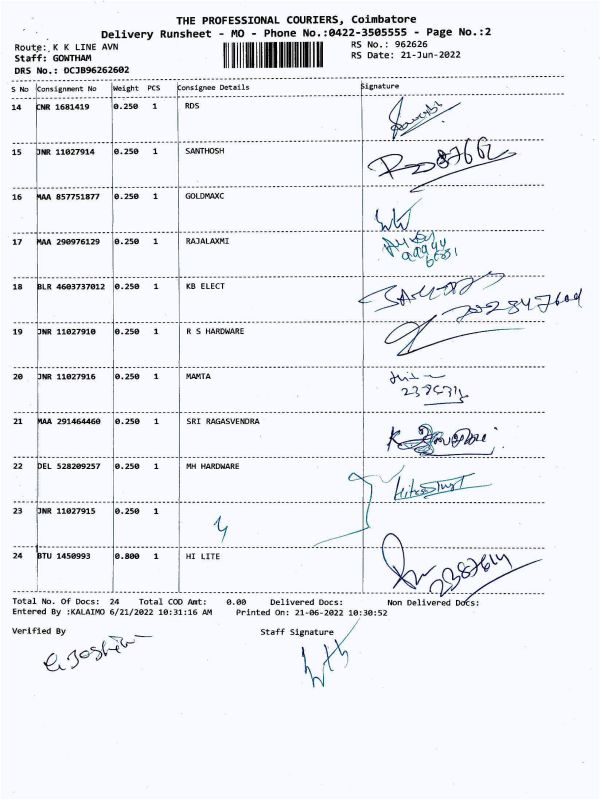 THE PROFESSIONAL COURIERS, Coimbatore
Delivery Runsheet - MO - Phone No.:0422-3505555 - Page No.:2
Route: K K LINE AVN RS No.: 962626
Staff: GOWTHAM RS Date: 21-Jun-2022
DRS No.: DCJB96262602
S No Consignment No Weight PCS Consignee Details Signature
14 CNR 1681419 0.250 1 RDS
15 JNR 11027914 0.250 1 SANTHOSH
16 MAA 857751877 0.250 1 GOLDMAXC
17 MAA 290976129 0.250 1 RAJALAXMI
18 BLR 4603737012 0.250 1 KB ELECT
19 JNR 11027910 0.250 1 R S HARDWARE
20 JNR 11027916 0.250 1 MAMTA
21 MAA 291464460 0.250 1 SRI RAGASVENDRA
22 DEL 528209257 0.250 1 MH HARDWARE
23 JNR 11027915 0.250 1
24 BTU 1450993 0.800 1 HI LITE
Total No. Of Docs: 24 Total COD Amt: 0.00 Delivered Docs: Non Delivered Docs:
Entered By :KALAIMO 6/21/2022 10:31:16 AM Printed On: 21-06-2022 10:30:52
Verified By Staff Signature